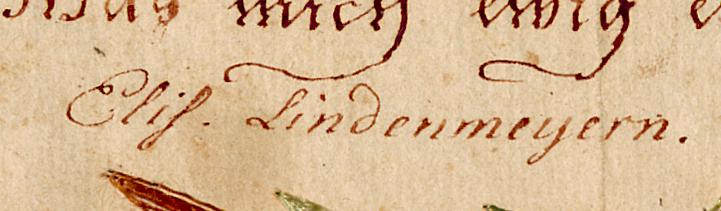 was mich ewig
Elis. Lindenmeyern.